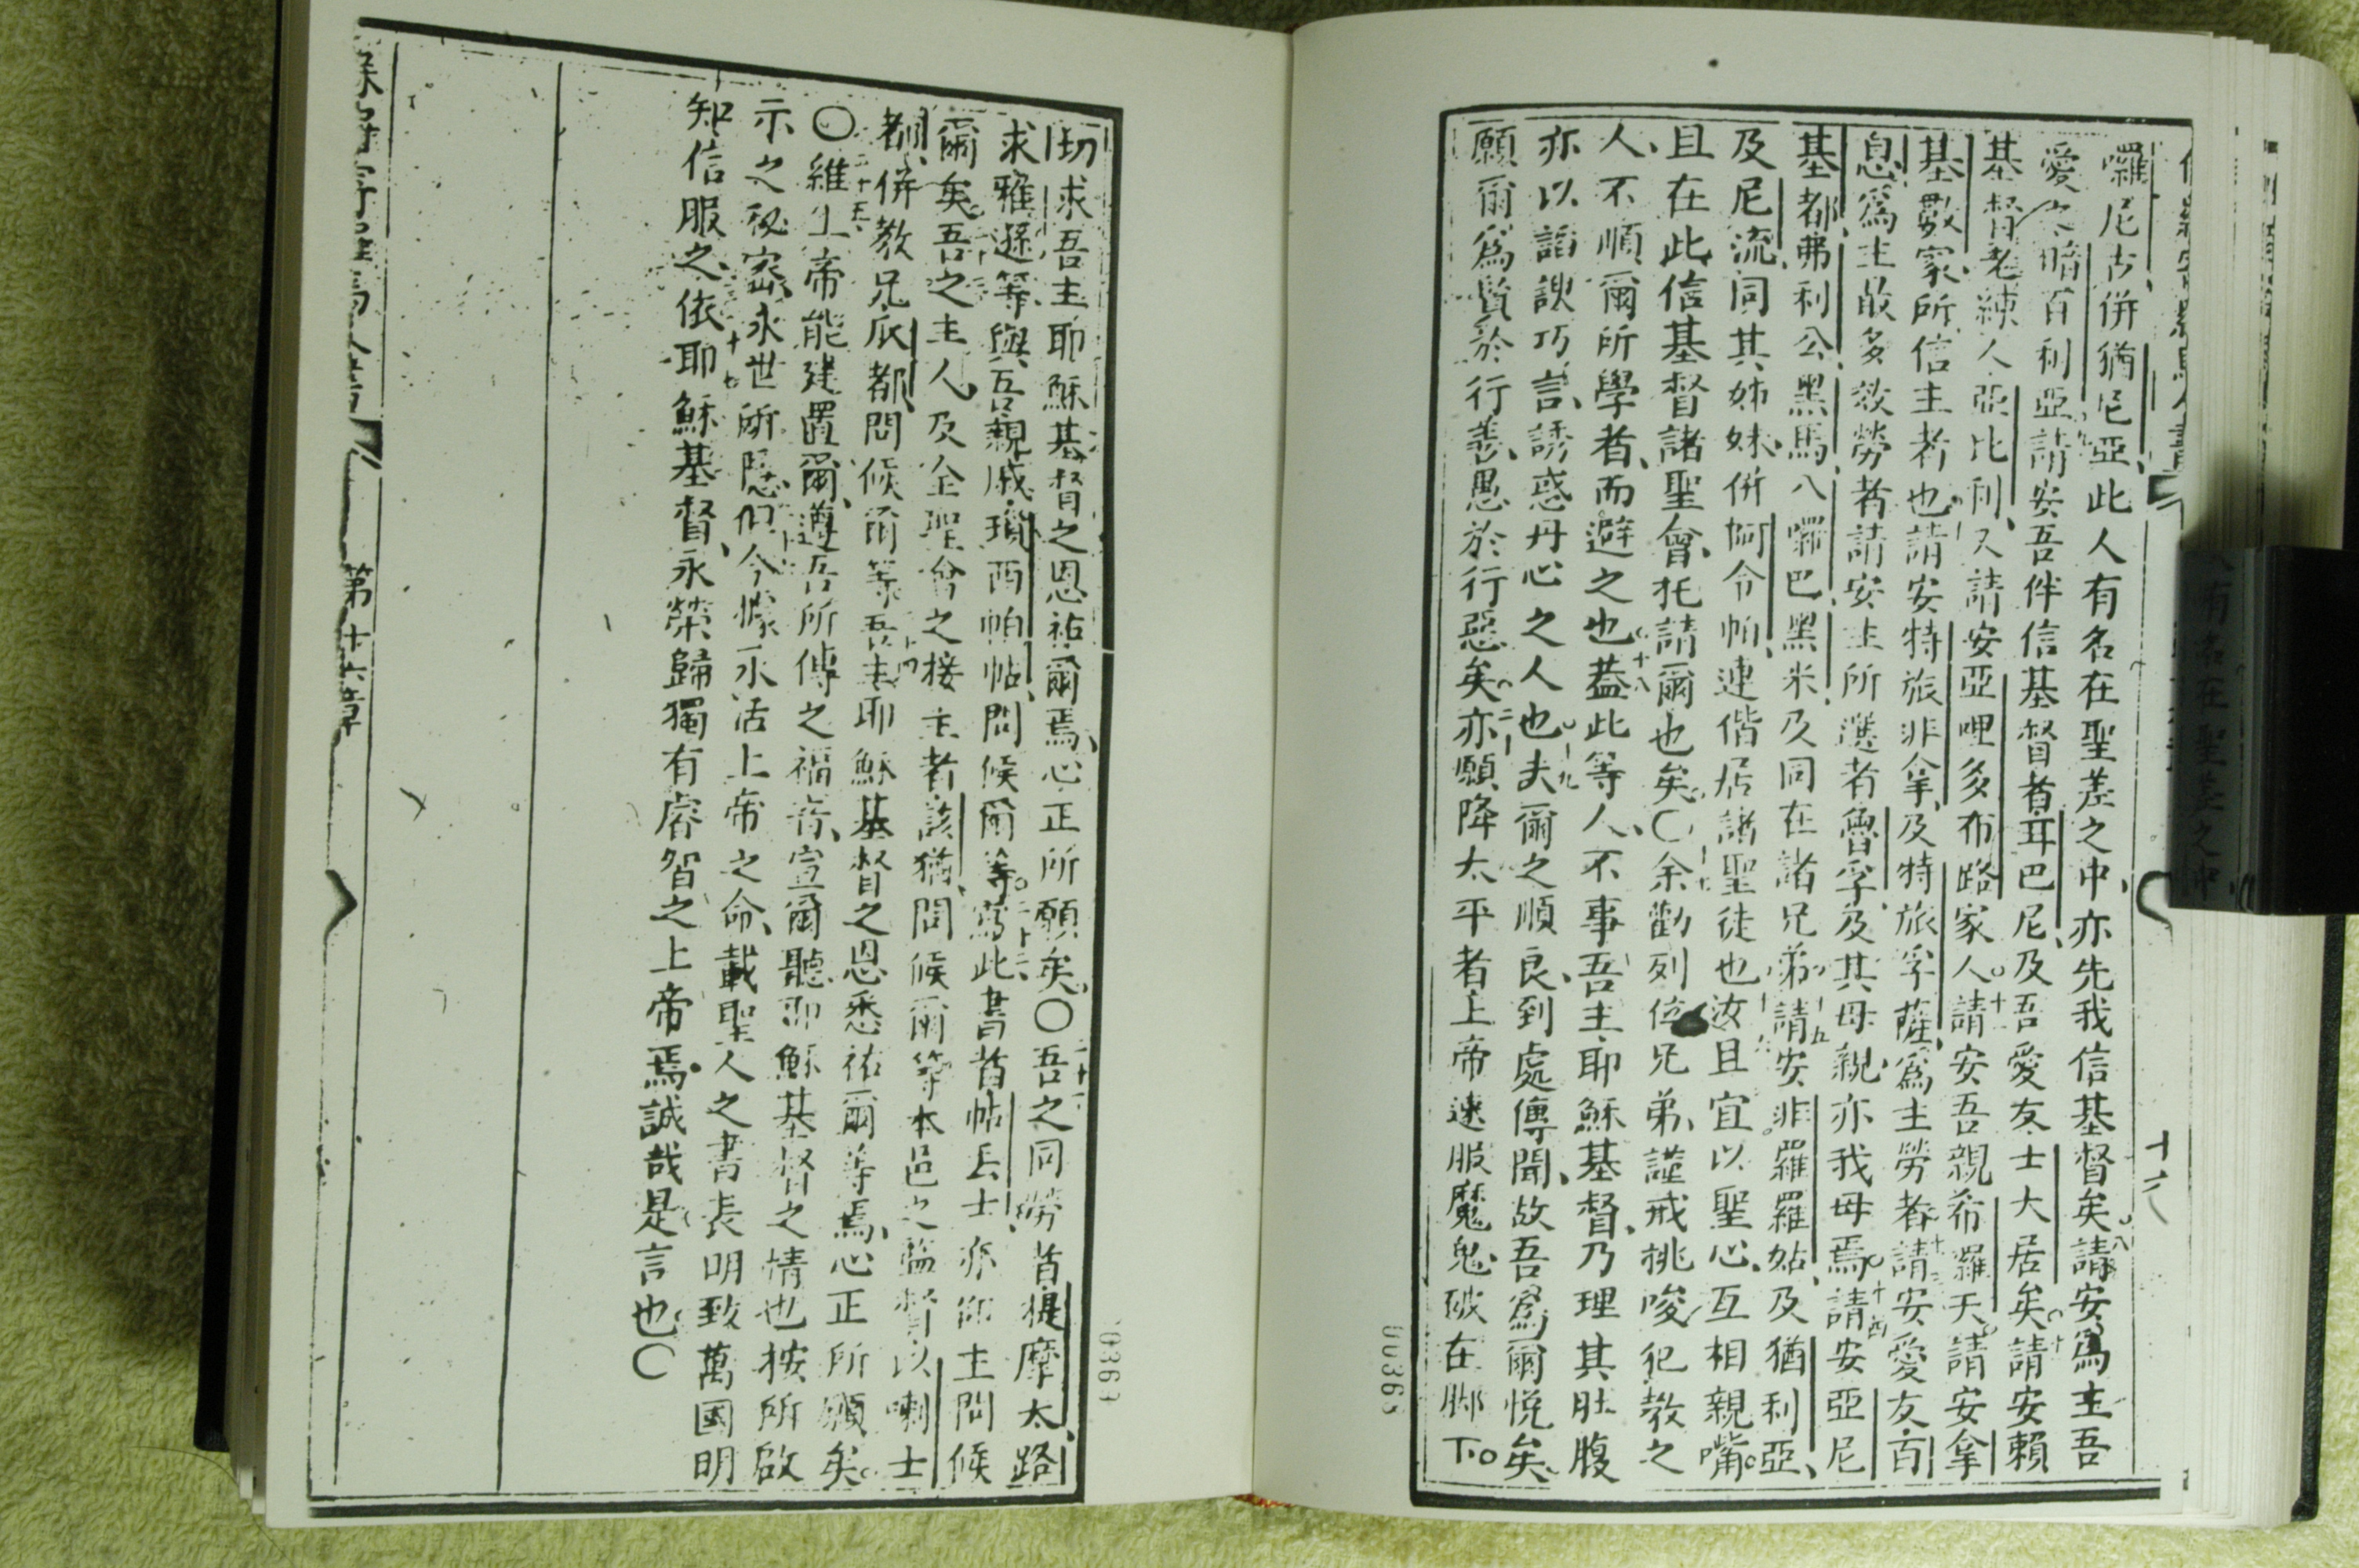 囉尼古、併猶尼亞、此人有名在聖差之中、亦先我信基督矣。八請安為主吾
愛之暗百利亞。九請安吾伴信基督者耳巴尼、及吾愛友士大居矣。十請安賴
基督老練人亞比利、又請安亞哩多布路家人。十一請安吾親希羅天、請安拿
基數家、所信主者也。請安特旅非拿、及特旅孚薩、為主勞者。請安愛友百
息、為主故多效勞者。請安主所選者魯孚、及其母親、亦我母焉。十四請安亞尼
基都、弗利公、黑馬、八囉巴、黑米、及同在諸兄弟。十五請安非羅羅姑、及猶利亞、
及尼流、同其姊妹、併阿令帕、連偕居諸聖徒也。汝且宜以聖心、互相親嘴。
且在此信基督諸聖會、托請爾也矣。〇余勸列位兄弟、謹戒挑唆犯教之
人、不順爾所學者、而避之也。十八蓋此等人、不事吾主耶穌基督、乃理其肚腹
亦以諂諛巧言、誘惑丹心之人也。十九夫爾之順良、到處傳聞、故吾為爾悅矣。
願爾為賢於行善、愚於行惡矣。亦願降太平者上帝、速服魔鬼、破在腳下。
切求吾主耶穌基督之恩祐爾焉、心正所願矣。〇吾之同勞者提摩太、路
求、雅遜等、與吾親戚瑣西帕帖、問候爾等。寫此書者帖丟士、亦仰主問候
爾矣。吾之主人、及全聖會之接主者該猶、問候爾等、本邑之藍督以喇士
都、併教兄瓜都、問候爾等。吾主耶穌基督之恩、悉祐爾等焉、心正所願矣。
〇二十五維上帝能建置爾、遵吾所傳之福音、宣爾聽耶穌基督之情也、按所啟
示之秘密、永世所隱、但今據永活上帝之命、載聖人之書、長明致萬國明
知信服之、依耶穌基督、永榮歸獨有睿智之上帝焉。誠哉是言也。〇
第十六章
00365